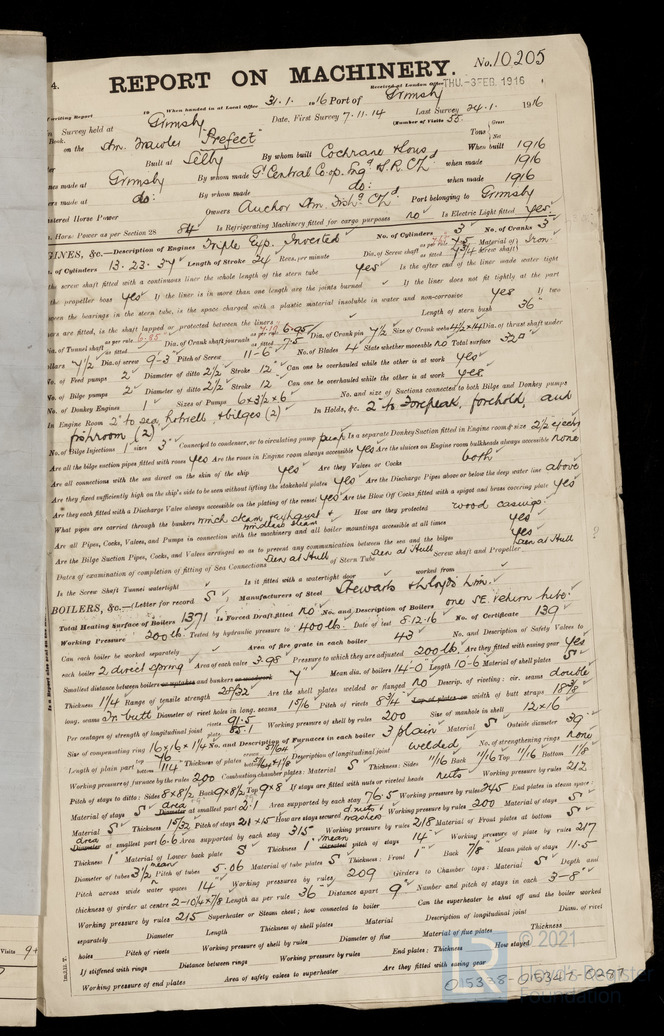 4.
REPORT ON MACHINERY. No. 10205
Received at London Office THU. 3 FEB. 1916
writing Report 19 When handed in at Local Office 31.1. 1916 Port of Grimsby
in Survey held at Grimsby Date, First Survey 7.11.14 Last Survey 24.1. 1916
Book. (Number of Visits 55.
on the Stm. Trawler "Prefect" Tons Gross Net
Built at Selby By whom built Cochrane & Sons When built 1916
ines made at Grimsby By whom made Gt Central Co-op. Engg & S.R. Co Ld when made 1916
ers made at do: By whom made do: when made 1916
stered Horse Power Owners Anchor Stm. Fishg Co Ld Port belonging to Grimsby
Horse Power as per Section 28 84 Is Refrigerating Machinery fitted for cargo purposes no Is Electric Light fitted yes
GINES, &c.—Description of Engines Triple Exp. Inverted No. of Cylinders 3 No. of Cranks 3
of Cylinders 13. 23. 37 Length of Stroke 24 Revs. per minute Dia. of Screw shaft as per rule as fitted Material of screw shaft Iron
the screw shaft fitted with a continuous liner the whole length of the stern tube yes Is the after end of the liner made water tight
the propeller boss yes If the liner is in more than one length are the joints burned If the liner does not fit tightly at the part
ween the bearings in the stern tube, is the space charged with a plastic material insoluble in water and non-corrosive yes If two
ers are fitted, is the shaft lapped or protected between the liners Length of stern bush 36"
Dia. of Tunnel shaft as per rule 6.95 as fitted Dia. of Crank shaft journals as per rule as fitted 7.5 Dia. of Crank pin 7 1/2 Size of Crank webs Dia. of thrust shaft under
ollars 7 1/2 Dia. of screw 9-3 Pitch of Screw 11-6 No. of Blades 4 State whether moveable no Total surface 32
No. of Feed pumps 2 Diameter of ditto 2 1/2 Stroke 12 Can one be overhauled while the other is at work yes
No. of Bilge pumps 2 Diameter of ditto 2 1/2 Stroke 12 Can one be overhauled while the other is at work yes
No. of Donkey Engines 1 Sizes of Pumps 6x3 1/2x6 No. and size of Suctions connected to both Bilge and Donkey pumps
In Engine Room 2" to sea, hotwell & bilges (2) In Holds, &c. 2" to Forepeak, forehold, and
fishroom (2)
No. of Bilge Injections 1 sizes 3" Connected to condenser, or to circulating pump pump Is a separate Donkey Suction fitted in Engine room & size 2 1/2 ejector
Are all the bilge suction pipes fitted with roses yes Are the roses in Engine room always accessible yes Are the sluices on Engine room bulkheads always accessible none
Are all connections with the sea direct on the skin of the ship yes Are they Valves or Cocks both
Are they fixed sufficiently high on the ship's side to be seen without lifting the stokehold plates yes Are the Discharge Pipes above or below the deep water line above
Are they each fitted with a Discharge Valve always accessible on the plating of the vessel yes Are the Blow Off Cocks fitted with a spigot and brass covering plate yes
What pipes are carried through the bunkers winch steam exhaust & windlass steam How are they protected wood casings
Are all Pipes, Cocks, Valves, and Pumps in connection with the machinery and all boiler mountings accessible at all times yes
Are the Bilge Suction Pipes, Cocks, and Valves arranged so as to prevent any communication between the sea and the bilges yes
Dates of examination of completion of fitting of Sea Connections seen at Hull of Stern Tube seen at Hull Screw shaft and Propeller seen at Hull
Is the Screw Shaft Tunnel watertight Is it fitted with a watertight door worked from
BOILERS, &c.—(Letter for record S Manufacturers of Steel Stewarts & Lloyds Lim.
Total Heating Surface of Boilers 1371 Is Forced Draft fitted no No. and Description of Boilers one SE return tube
Working Pressure 200 lb. Tested by hydraulic pressure to 400 lb. Date of test 8.12.16 No. of Certificate 139
Can each boiler be worked separately Area of fire grate in each boiler 43 No. and Description of Safety Valves to
each boiler 2 direct spring Area of each valve 3.98 Pressure to which they are adjusted 200 lb. Are they fitted with easing gear yes
Smallest distance between boilers or uptakes and bunkers or woodwork Mean dia. of boilers 14-0 Length 10-6 Material of shell plates S
Thickness 1 1/4 Range of tensile strength 28/32 Are the shell plates welded or flanged no Descrip. of riveting: cir. seams double
long. seams Tr butt Diameter of rivet holes in long. seams 1 5/16 Pitch of rivets 8 3/4 Lap of plates or width of butt straps 18 3/8
Per centages of strength of longitudinal joint rivets 91.5 plate 85.1 Working pressure of shell by rules 200 Size of manhole in shell 12 x 16
Size of compensating ring 16x16x1 1/4 No. and Description of Furnaces in each boiler 3 plain Material S Outside diameter 39
Length of plain part top 76 bottom Thickness of plates Description of longitudinal joint welded No. of strengthening rings none
Working pressure of furnace by the rules 200 Combustion chamber plates: Material S Thickness: Sides 11/16 Back 11/16 Top 11/16 Bottom 1/8
Pitch of stays to ditto: Sides 8x8 1/2 Back 9x8 1/2 Top 9x8 If stays are fitted with nuts or riveted heads nuts Working pressure by rules 212
Material of stays S area Diameter at smallest part 2.1 Area supported by each stay 76.5 Working pressure by rules 245 End plates in steam space:
Material S Thickness 1 5/32 Pitch of stays 21x15 How are stays secured d. nuts & washers Working pressure by rules 200 Material of stays S
area Diameter at smallest part 6.6 Area supported by each stay 315 Working pressure by rules 218 Material of Front plates at bottom S
Thickness 1" Material of Lower back plate S Thickness 1" mean Greatest pitch of stays 14 Working pressure of plate by rules 217
Diameter of tubes 3 1/2 mean Pitch of tubes 5.06 Material of tube plates S Thickness: Front 1" Back 7/8 Mean pitch of stays 11.5
Pitch across wide water spaces 14 Working pressures by rules 209 Girders to Chamber tops: Material S Depth and
thickness of girder at centre Length as per rule 36 Distance apart 9" Number and pitch of stays in each 3-8"
Working pressure by rules 215 Superheater or Steam chest; how connected to boiler Can the superheater be shut off and the boiler worked
separately Diameter Length Thickness of shell plates Material Description of longitudinal joint Diam. of rivet
holes Pitch of rivets Working pressure of shell by rules Diameter of flue Material of flue plates Thickness
If stiffened with rings Distance between rings Working pressure by rules End plates: Thickness How stayed
Working pressure of end plates Area of safety valves to superheater Are they fitted with easing gear
© 2021
Lloyd's Register
Foundation
015338-015347-0297
Visits 9